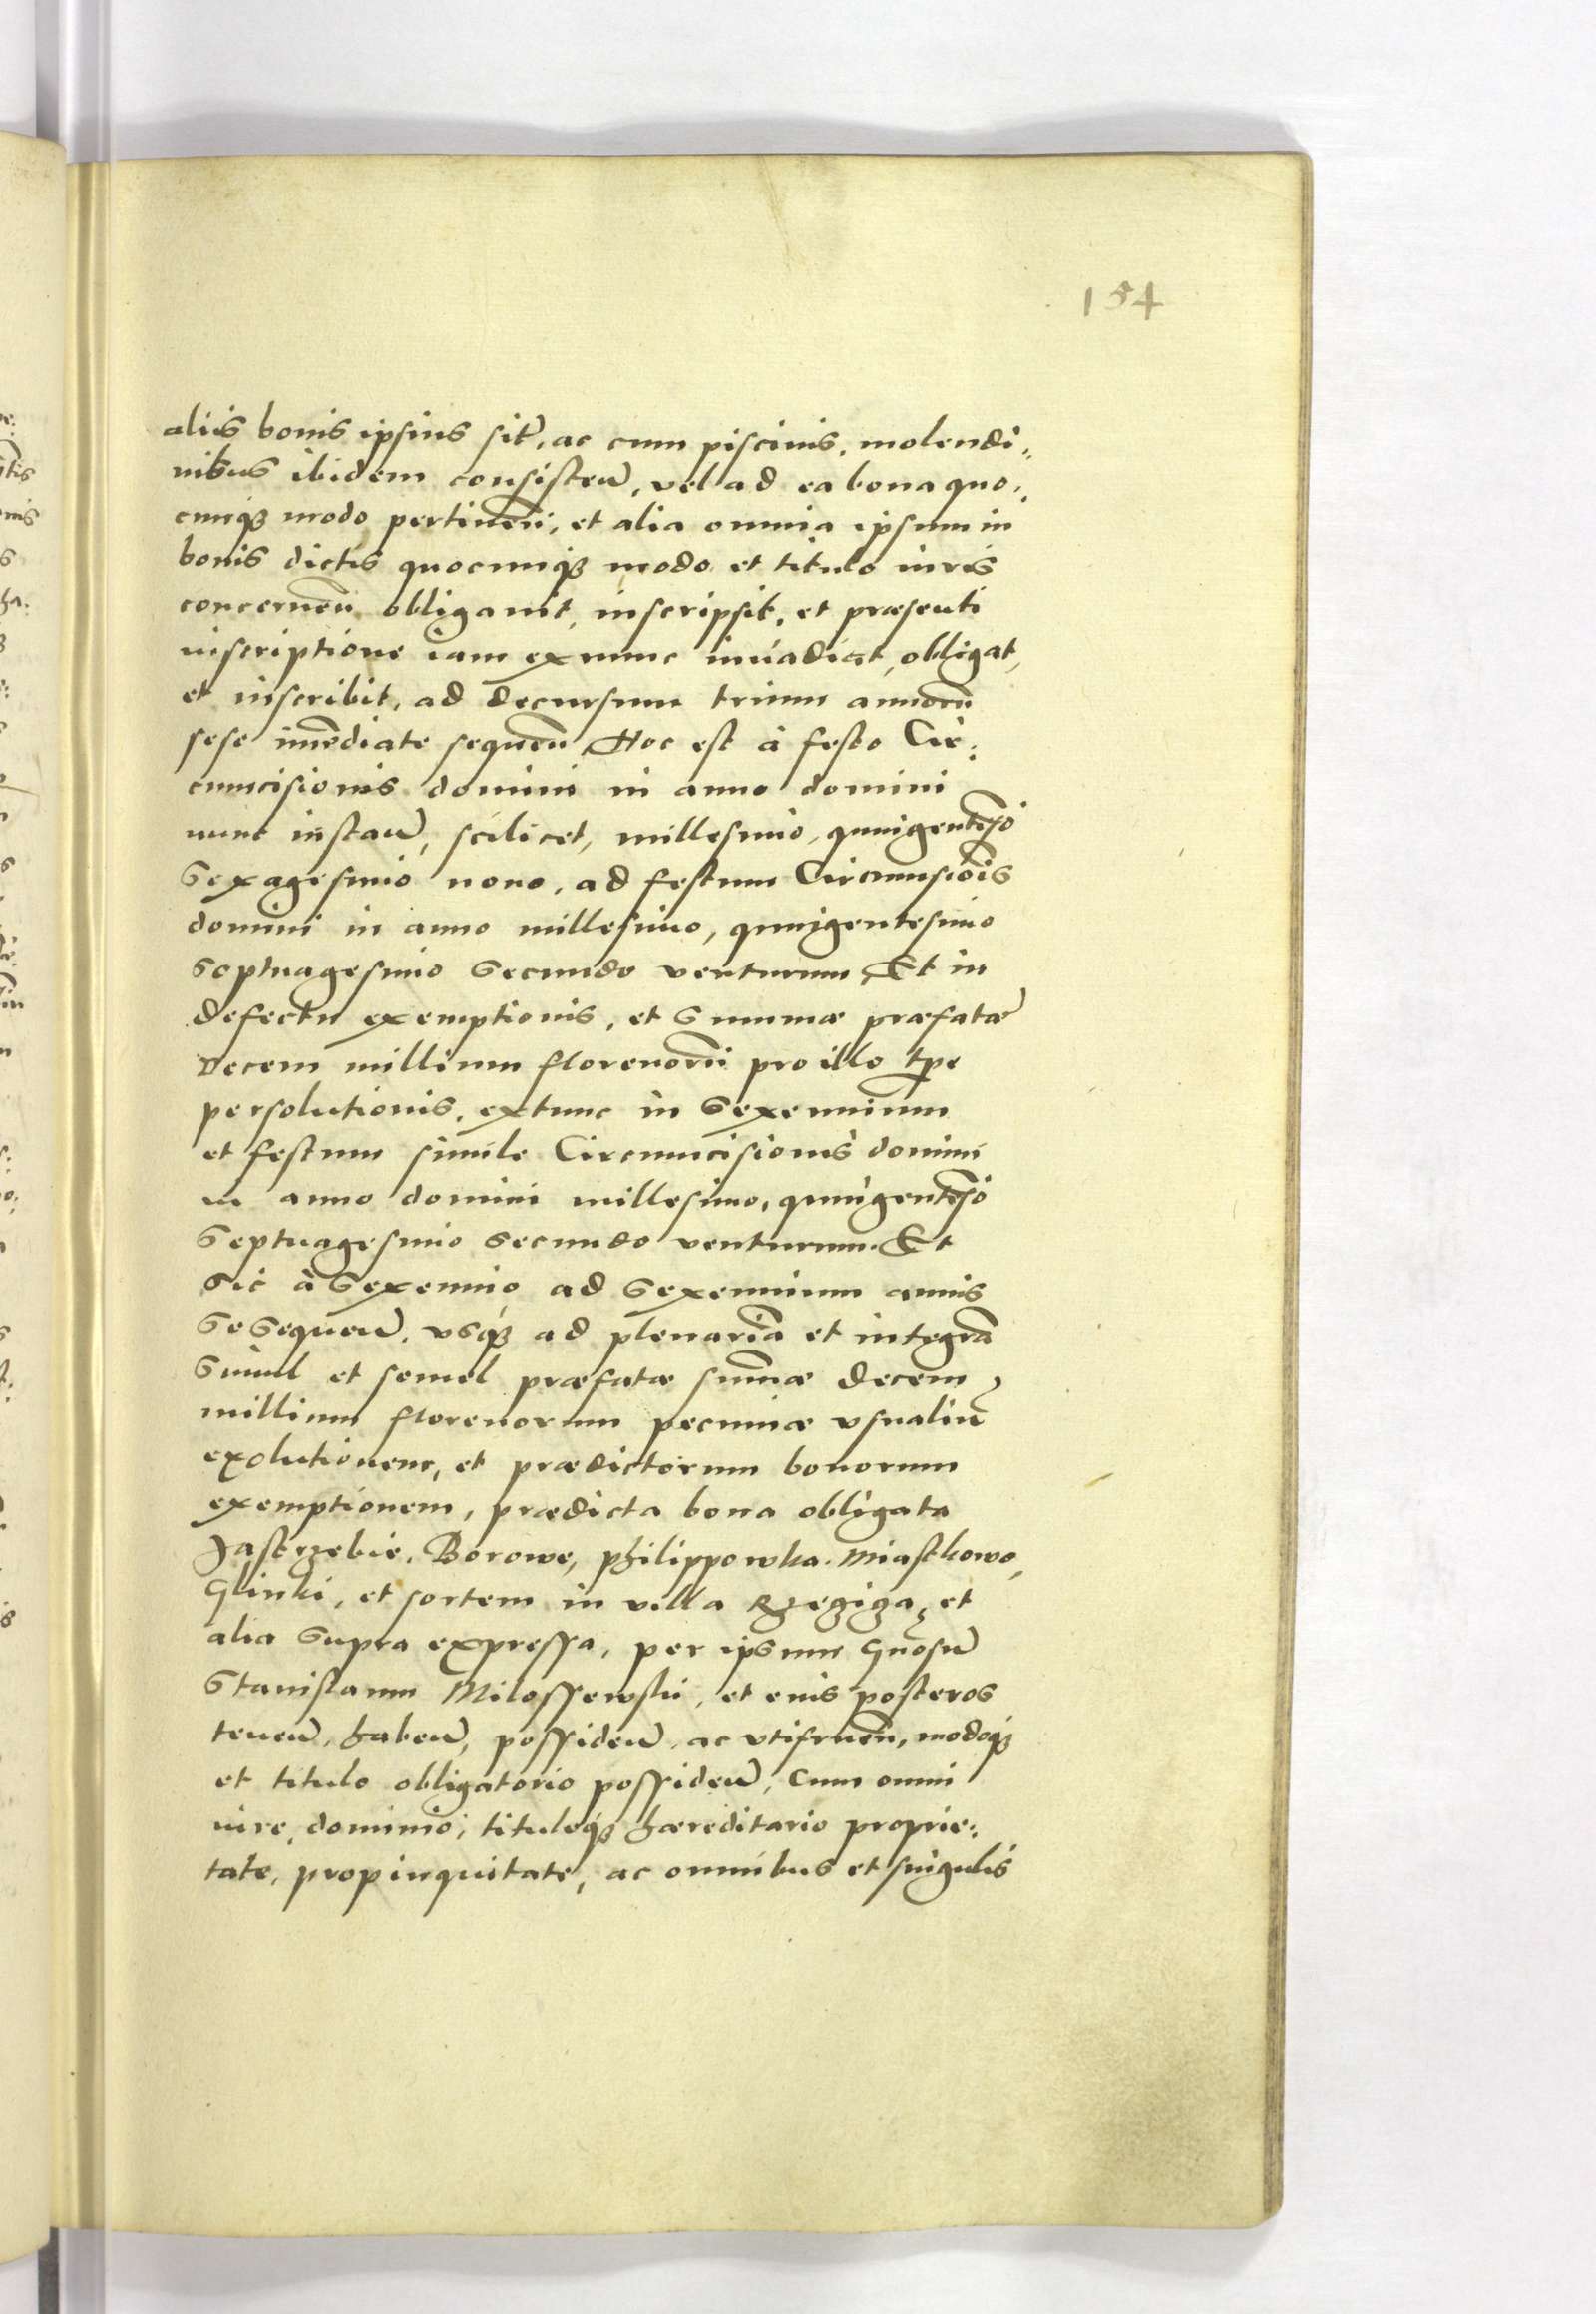 154
aliis bonis ipsius sitr, ac cum piscinis, molendi„
nibus ibidem consisteñ, vel ad ea bona quo„
cunqȝ modo pertineñ, et alia omnia ipsum in
bonis dictis quocunqȝ modo et titulo iuris
concerneñ obligauit, inscripsit, et præsenti
inscriptione iam exnunc inuadiat, obligat,
et inscribit, ad decursum trium annorũ
sese im̃ediate sequeñ, Hoc est à festo Cir:
cumcisionis domini in anno domini
nunc instañ, scilicet, millesimo, quingentes̃o
Sexagesimo nono, ad festum Circumsiõis
domini in anno millesimo, quingentesimo
Septuagesimo Secundo venturum, Et in
defectu exemptionis, et Summæ præfatæ
decem millium florenorũ pro illo tp̃e
persolutionis, extunc in Sexennium
et festum simile Circumcisionis domini
in anno domini millesimo, quingentes̃o
Septuagesimo Secundo venturum. Et
Sic à Sexennio ad Sexennium annis
Se Sequeñ, vsqȝ ad plenariã et integrã
Simul et semel præfatæ sum̃æ decem
millium florenorum pecuniæ vsualiũ
exolutionem, et prædictorum bonorum
exemptionem, prædicta bona obligata
Jastrzebie, Borowe, Philippowka. Miastkowo,
Glinki, et sortem in villa Rzegiga, et
alia Supra expressa, per ipsum Gñosũ
Stanislaum Milossewski, et eius posteros
teneñ, habeñ, possideñ, ac vtifrueñ, modoqȝ
et titulo obligatorio possideñ, Cum omni
iure, dominio, tituloqȝ hæreditario proprie:
tate, propinquitate, ac omnibus et singulis